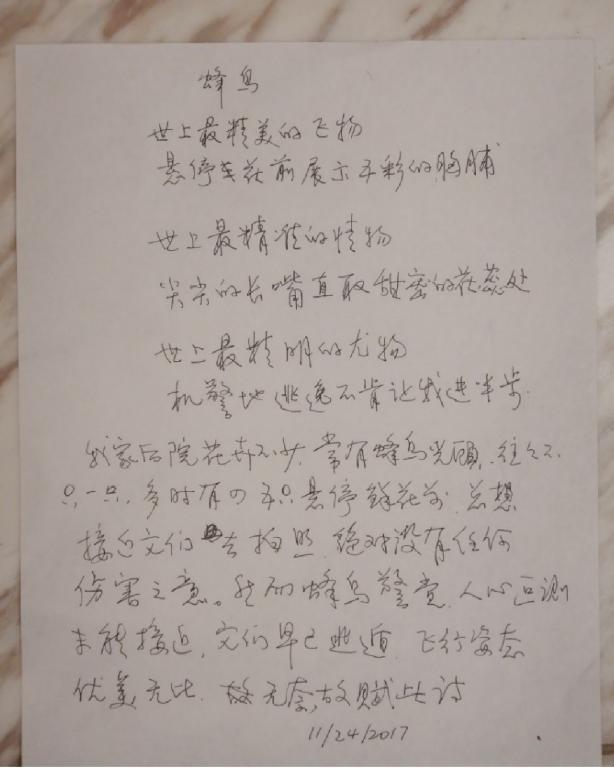 蜂鸟
世上最精美的飞物
悬停在花前展示五彩的胸脯
世上最精准的情物
尖尖的长嘴直取甜密的花蕊处
世上最精明的尤物
机警地逃逸不肯让我进半步.
我家后院花卉不少,常有蜂鸟光顾.往往不
只一只,多时有四五只悬停鲜花前.总想
接近它们去拍照.绝对没有任何
伤害之意。然而蜂鸟警觉.人心叵测
未能接近,它们早已逃遁.飞行姿态
优美无比.无奈,故赋此诗
11/24/2017